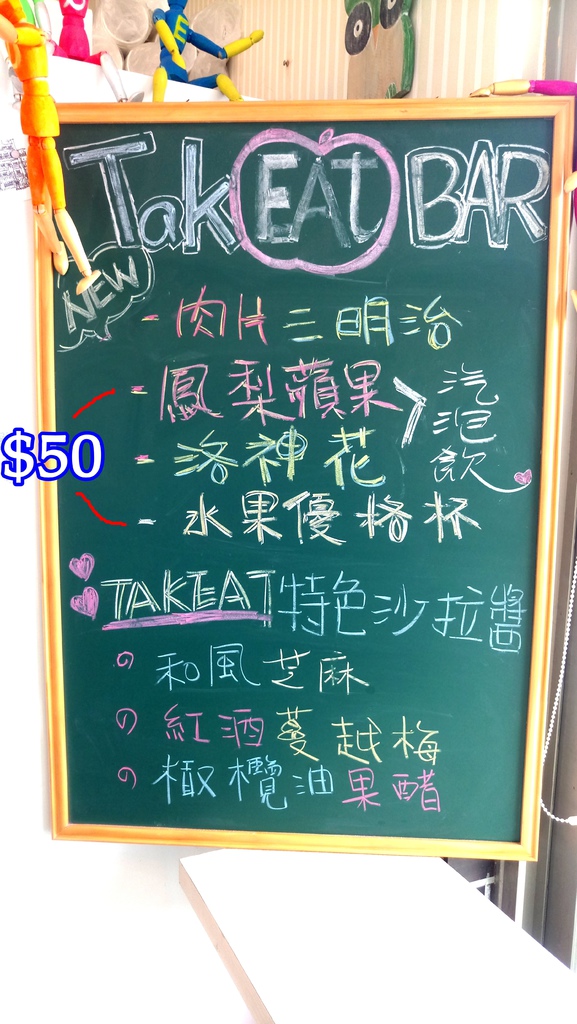 TakEAt BAR
NEW
- 肉片三明治
- 鳳梨蘋果
- 洛神花
汽泡飲
$50
- 水果優格杯
TAKEAT特色沙拉醬
和風芝麻
紅酒蔓越梅
橄欖油果醋